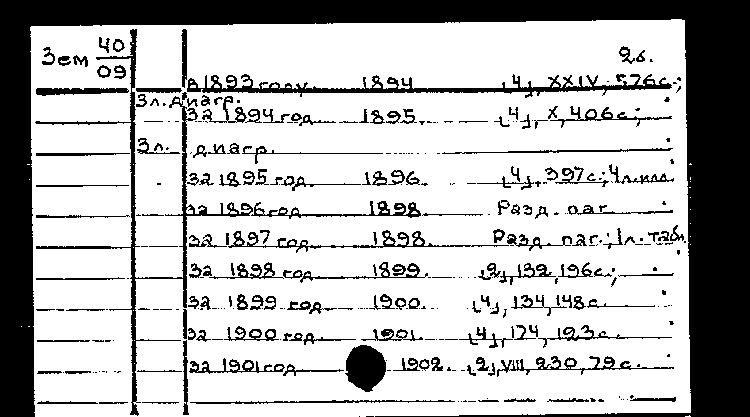 Зем 40/09 2б.
в 1893 году 1894 [4], XXIV, 576 с.;
3 л. диагр.
за 1894 год 1895. [4], X, 406 с.;
3 л. диагр.
за 1895 год 1896. [4], 397 с.; 4 л. илл.
за 1896 год 1898. Разд. паг.
за 1897 год 1898. Разд. паг.; 1 л. табл.
за 1898 год 1899. [2], 132, 196 с.;
за 1899 год 1900. [4], 134, 148 с.
за 1900 год 1901. [4], 174, 123 с.
за 1901 год 1902. [2], VIII, 230, 79 с.